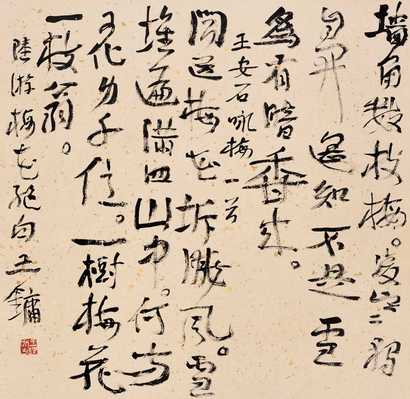 墙角数枝梅。凌寒独
自开 遥知不是雪
為有暗香来。
王安石詠梅一首
闻道梅花坼曉风。雪
堆遍满四山中。何方
可化身千億。一樹梅花
一放翁。
陸游梅花絕句王鏞